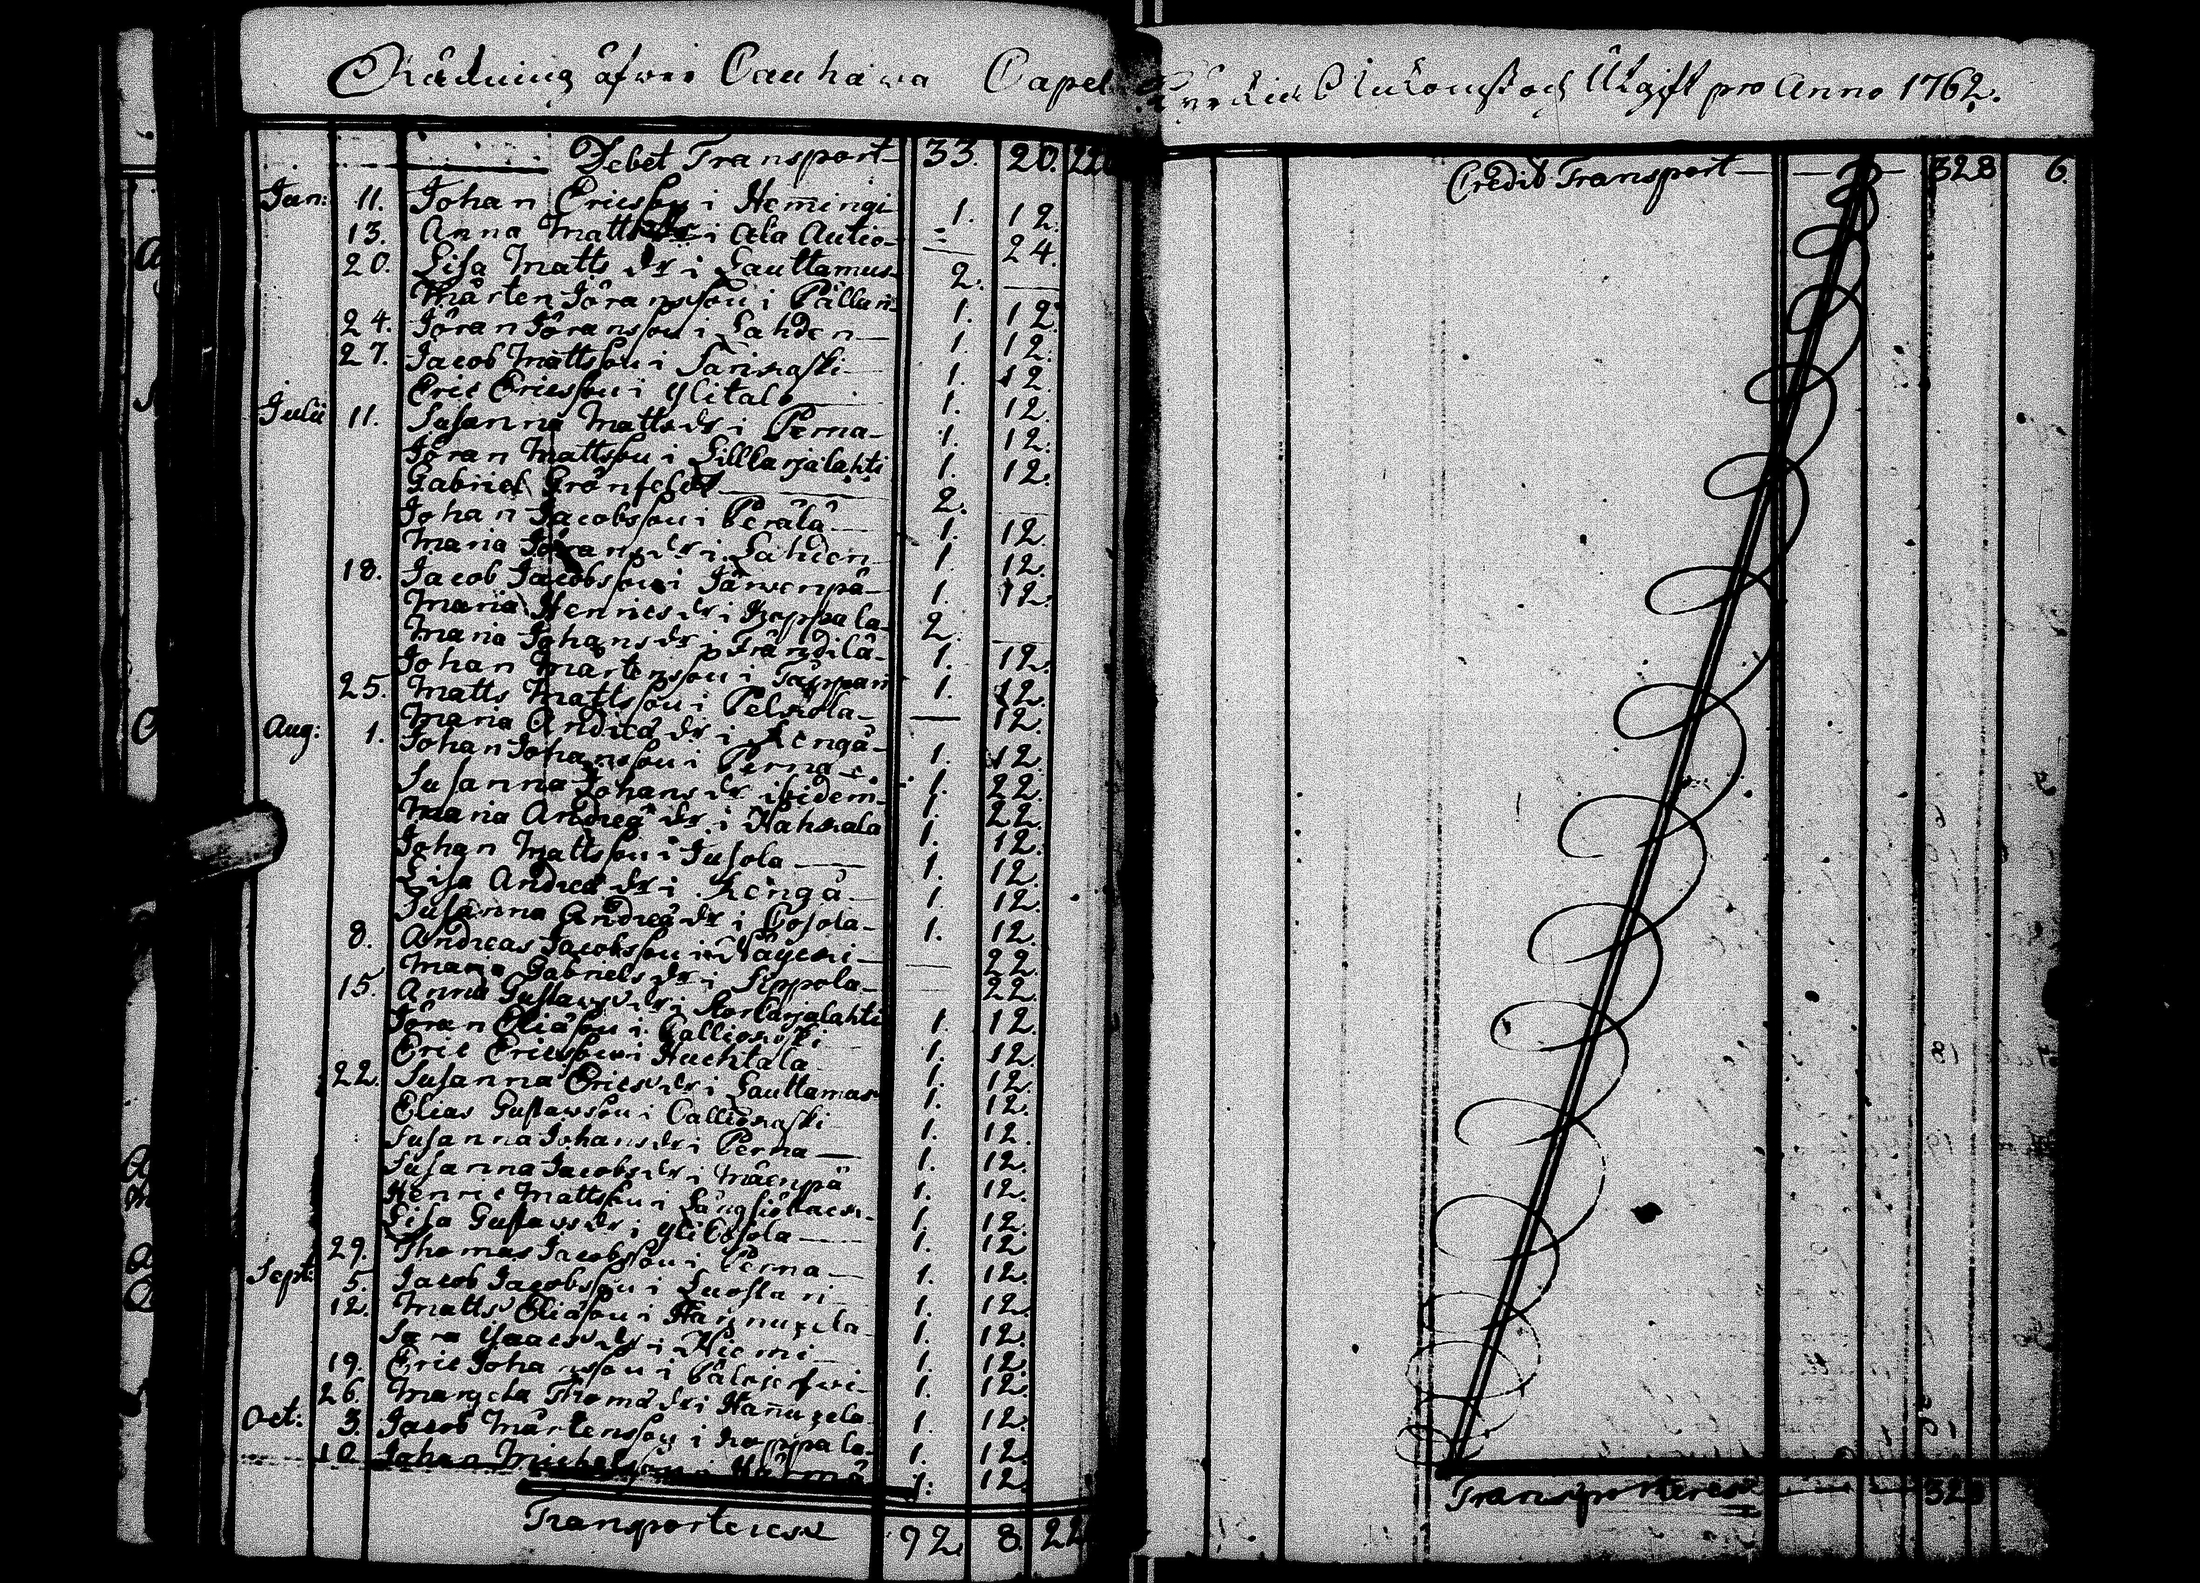 Räkning öfwer Cauhawa Capel Kyrckias Inkomst och Utgift pro Anno 1762.
Debet Transport 33. 20. 22
Jan: 11. Johan Ericsson i Hemingi 1. 12.
13. Anna Matts dr i Ala Autio — 24.
20. Lisa Matts dr i Lauttamus 2. —
Mårten Jöransson i Pällin 1. 12.
24. Jöran Jöransson i Lahden 1. 12.
27. Jacob Mattsson i 1. 12.
Eric Ericsson i Ylitalo 1. 12.
Julii 11. Susanna Matts dr i Perna 1. 12.
Jöran Mattsson i Lillkarjalahti 1. 12.
Gabriel Grönfeldt 2. —
Johan Jacobsson i Perälä 1. 12.
Maria Jörans dr i Lahden 1. 12.
18. Jacob Jacobsson i Järwenpä 1. 12.
Maria Henrics dr i Koppala 2. —
Maria Johans dr i Frändilä 1. 12.
Johan Mårtensson i Tappari 1. 12.
25. Matts Mattsson i Pelkola — 12.
Aug: 1. Maria Andreæ dr i Kengä 1. 12.
Johan Johansson i Perna 1. 22.
Susanna Johans dr ibidem 1. 22.
Maria Andreæ dr i Wahkala 1. 12.
Johan Mattsson i Jusola 1. 12.
Lisa Andreæ dr i Kengä 1. 12.
Susanna Andreæ dr i Cosola 1. 12.
8. Andreas Jacobsson i — 22.
Maria Gabriels dr i Sippola — 22.
15. Anna Gustavs dr i Storkarjalahti 1. 12.
Jöran Eliæson i Callioskoski 1. 12.
Eric Ericsson i Huchtala 1. 12.
22. Susanna Erics dr i Lauttamus 1. 12.
Elias Gustavsson i Callioskoski 1. 12.
Susanna Johans dr i Perna 1. 12.
Susanna Jacobs dr i Mäenpä 1. 12.
Henric Mattsson i 1. 12.
Lisa Gustavs dr i Ylicosola 1. 12.
29. Thomas Jacobsson i Perna 1. 12.
Sept: 5. Jacob Jacobsson i Luostari 1. 12.
12. Matts Eliæson i Hannuxela 1. 12.
Sara Isaacs dr i Niemi 1. 12.
19. Eric Johansson i Pälojerfwi 1. 12.
26. Margeta Thomæ dr i Hannuxela 1. 12.
Oct: 3. Jacob Mårtensson i Koppala 1. 12.
10. Johan Michelsson i Härmä 1. 12.
Transporteres 92. 8. 22
Credit Transport 328 6.
Transporteres 328